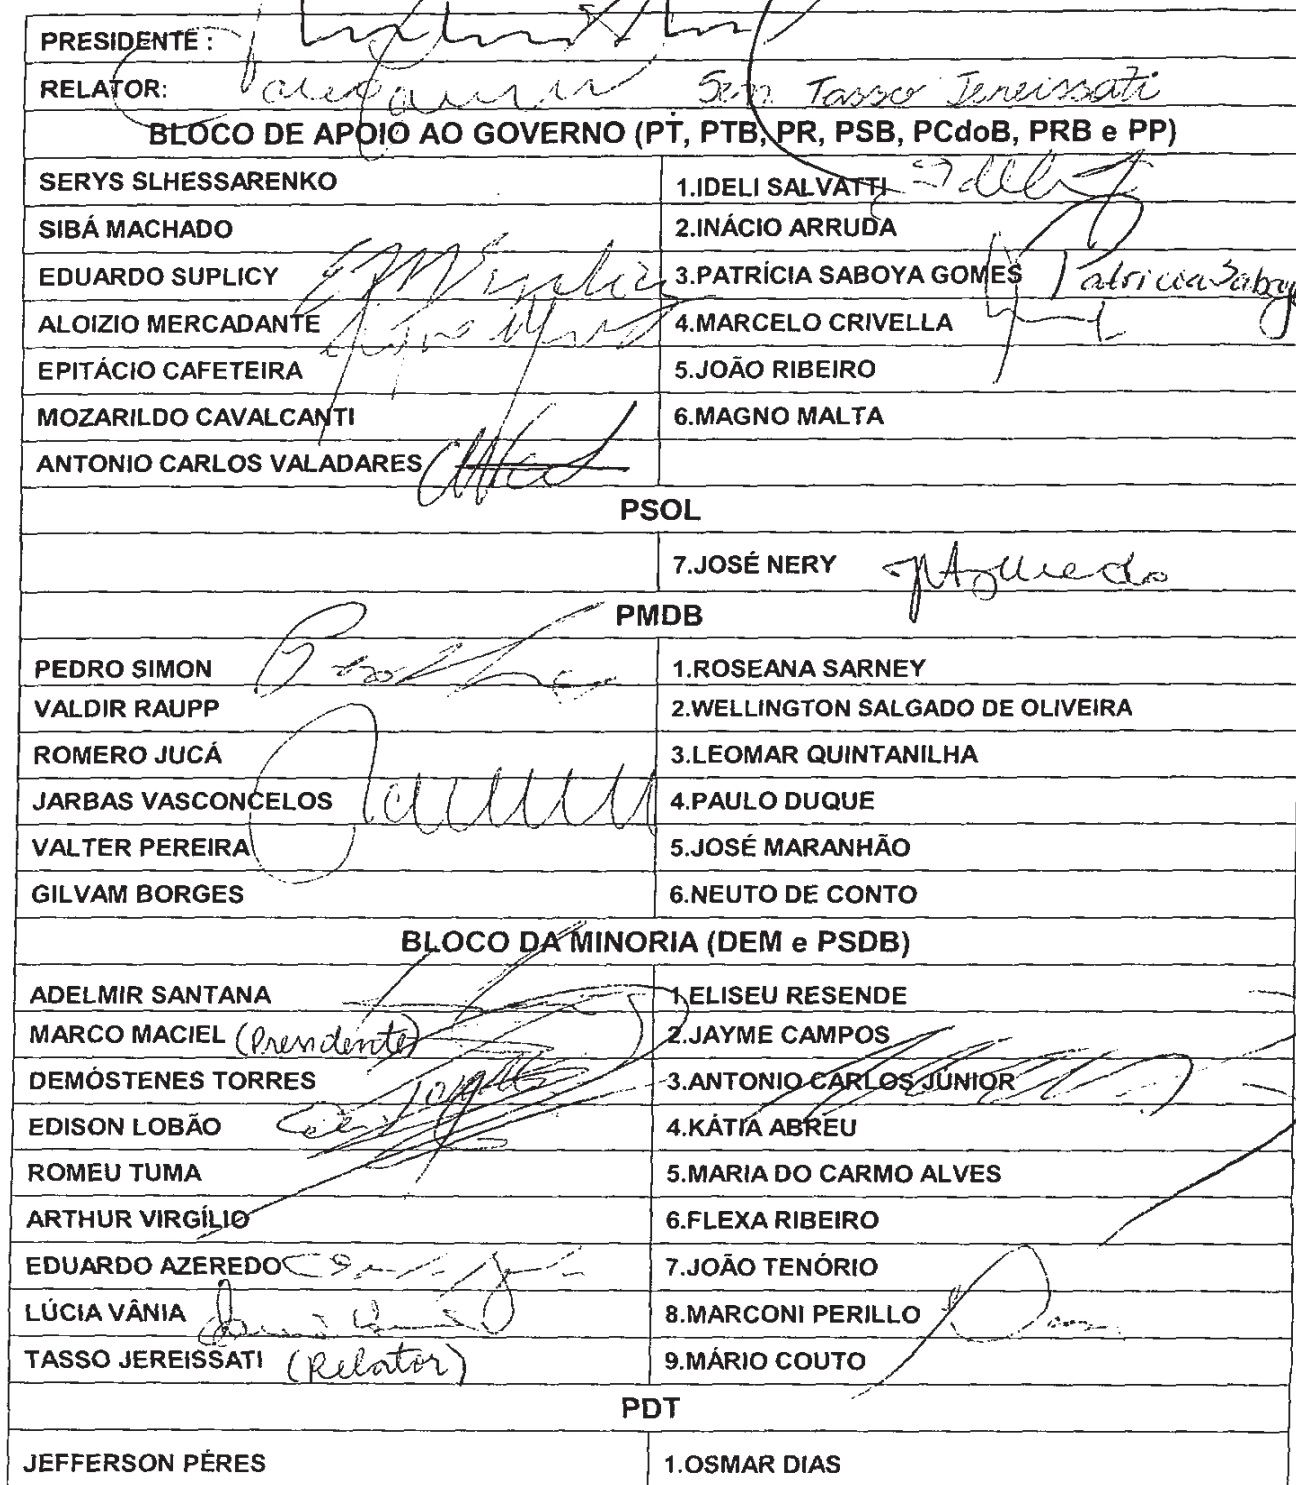 PRESIDENTE :
RELATOR: Sen Tasso Jereissati
BLOCO DE APOIO AO GOVERNO (PT, PTB, PR, PSB, PCdoB, PRB e PP)
SERYS SLHESSARENKO 1.IDELI SALVATTI Ideli
SIBÁ MACHADO 2.INÁCIO ARRUDA
EDUARDO SUPLICY 3.PATRÍCIA SABOYA GOMES Patricia Saboya
ALOIZIO MERCADANTE 4.MARCELO CRIVELLA
EPITÁCIO CAFETEIRA 5.JOÃO RIBEIRO
MOZARILDO CAVALCANTI 6.MAGNO MALTA
ANTONIO CARLOS VALADARES
PSOL
7.JOSÉ NERY
PMDB
PEDRO SIMON 1.ROSEANA SARNEY
VALDIR RAUPP 2.WELLINGTON SALGADO DE OLIVEIRA
ROMERO JUCÁ 3.LEOMAR QUINTANILHA
JARBAS VASCONCELOS 4.PAULO DUQUE
VALTER PEREIRA 5.JOSÉ MARANHÃO
GILVAM BORGES 6.NEUTO DE CONTO
BLOCO DA MINORIA (DEM e PSDB)
ADELMIR SANTANA 1.ELISEU RESENDE
MARCO MACIEL (Presidente) 2.JAYME CAMPOS
DEMÓSTENES TORRES 3.ANTONIO CARLOS JÚNIOR
EDISON LOBÃO 4.KÁTIA ABREU
ROMEU TUMA 5.MARIA DO CARMO ALVES
ARTHUR VIRGÍLIO 6.FLEXA RIBEIRO
EDUARDO AZEREDO 7.JOÃO TENÓRIO
LÚCIA VÂNIA 8.MARCONI PERILLO
TASSO JEREISSATI (Relator) 9.MÁRIO COUTO
PDT
JEFFERSON PÉRES 1.OSMAR DIAS